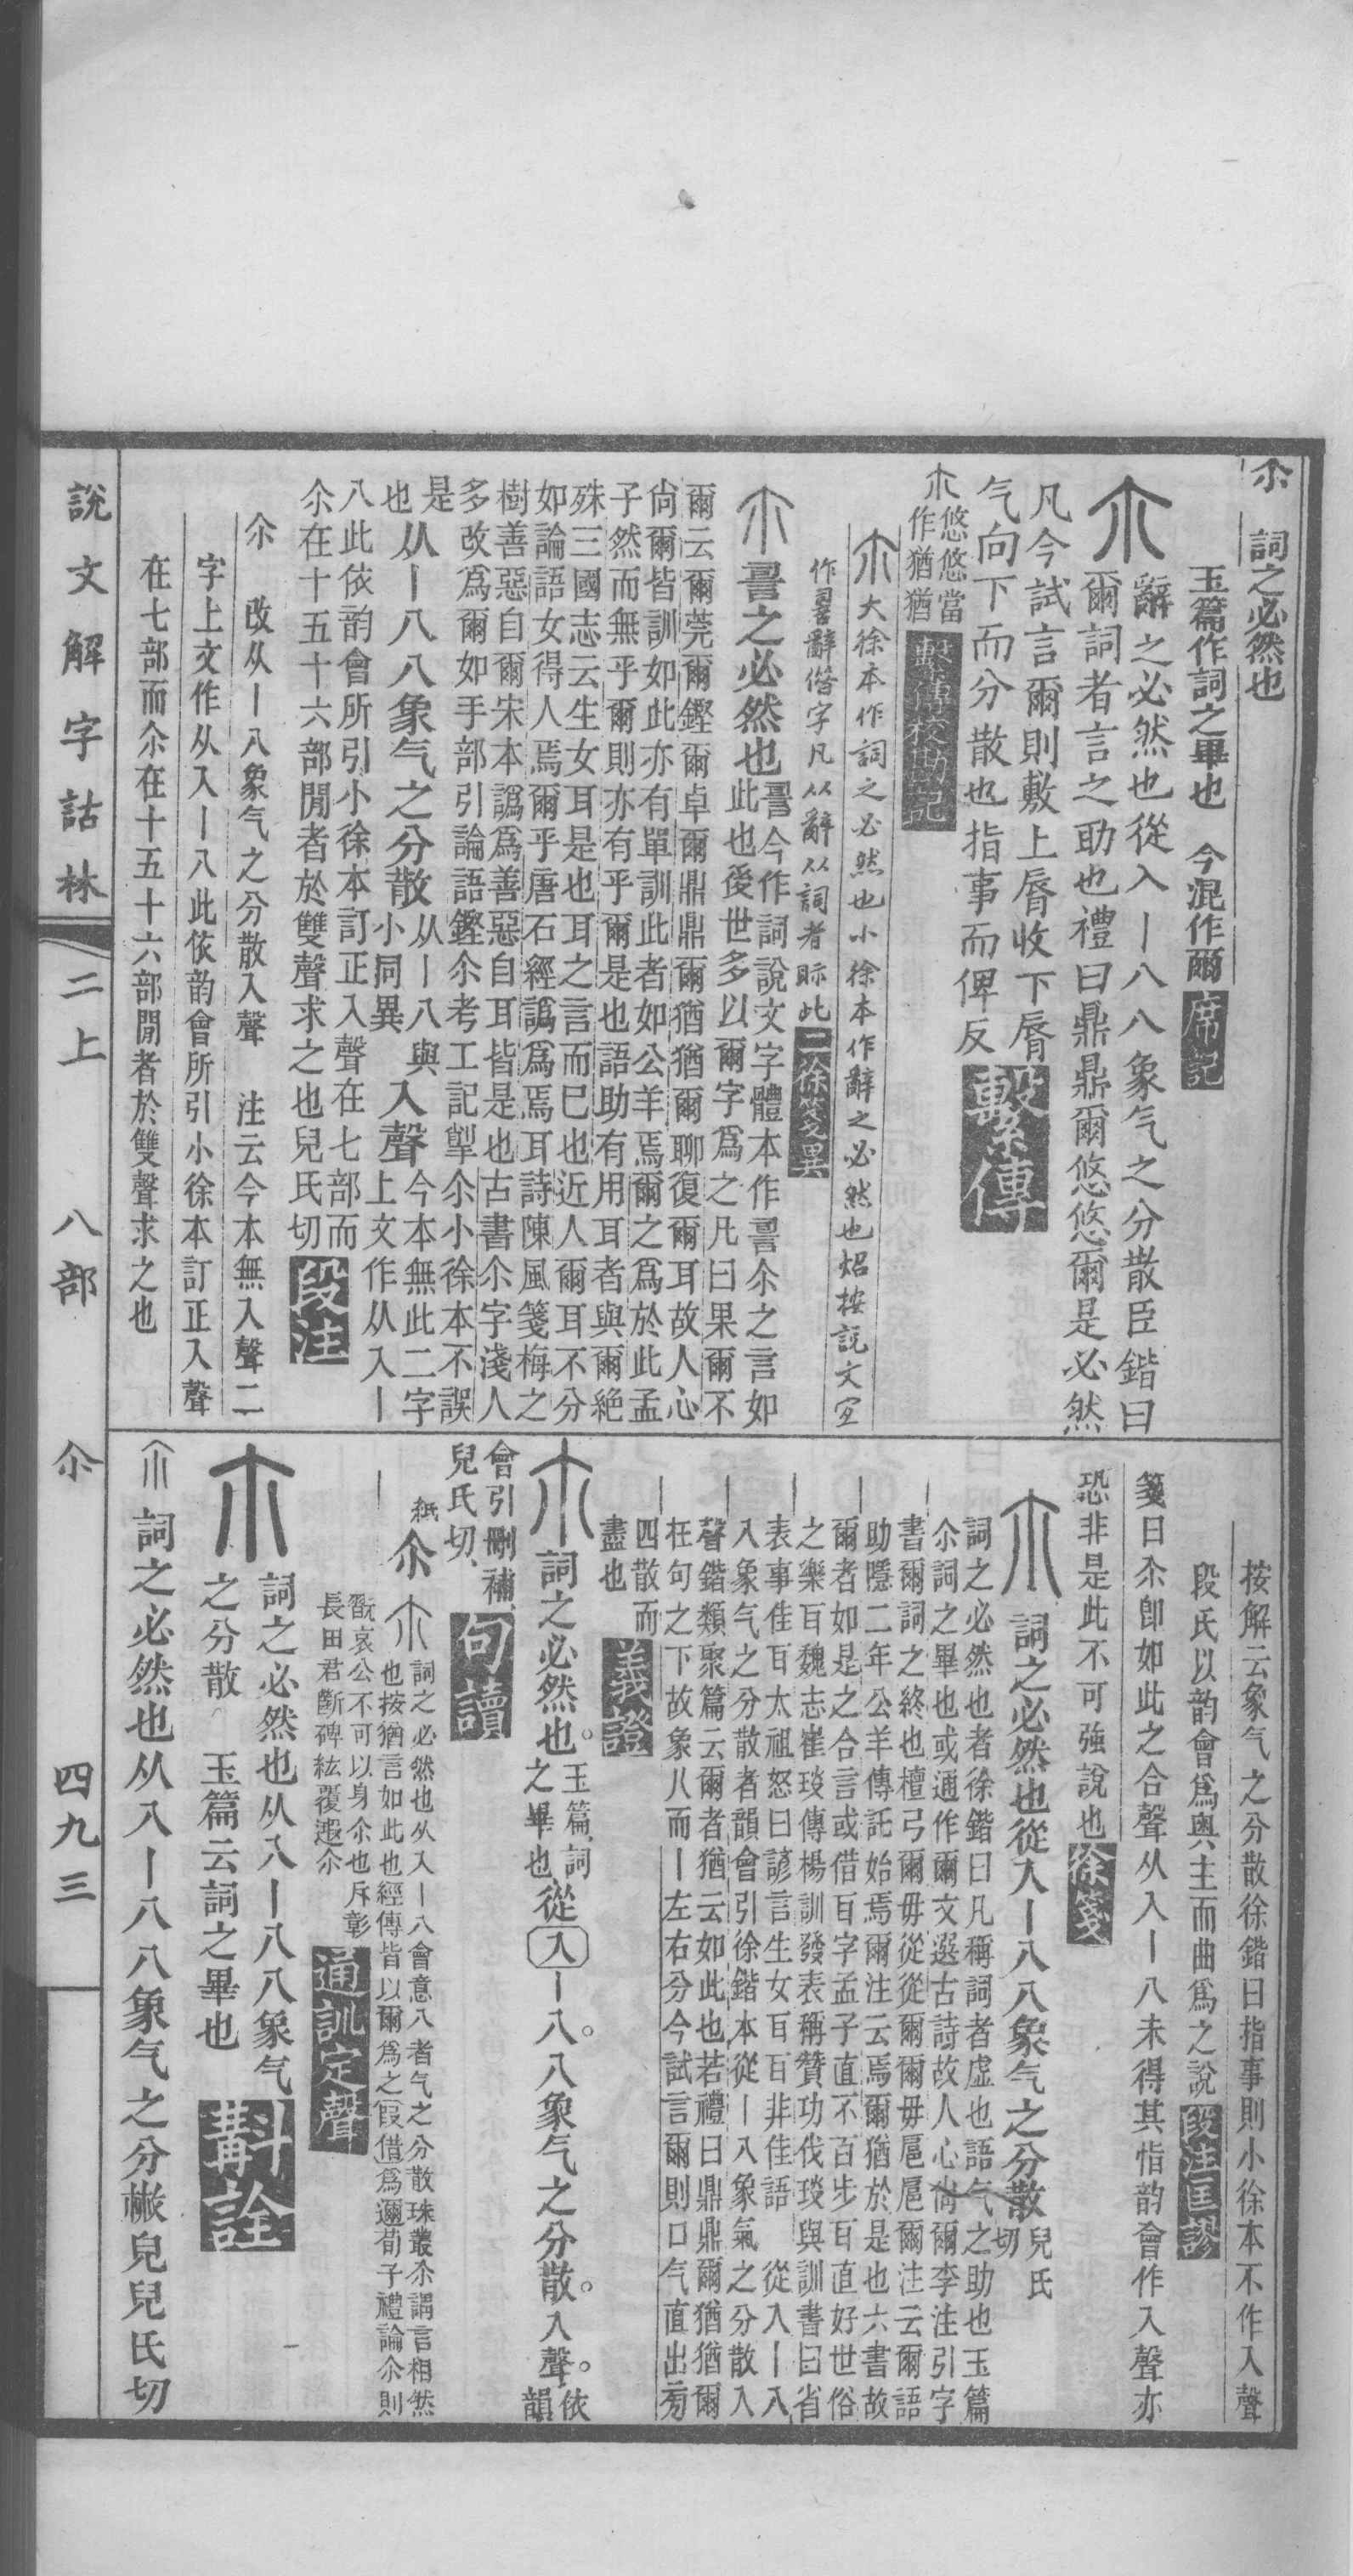 尒 詞之必然也
玉篇作詞之畢也 今混作爾 席記
辭之必然也從入丨八八象气之分散臣鍇曰
爾詞者言之助也禮曰鼎鼎爾悠悠爾是必然
凡今試言爾則敷上脣收下脣
气向下而分散也指事而俾反 繫傳
悠悠當
作猶猶 繫傳校勘記
大徐本作詞之必然也小徐本作辭之必然也炤按說文宜
作䛐辭偕字凡从辭从詞者眎此 二徐箋異
䛐之必然也 䛐今作詞說文字體本作䛐尒之言如
此也後世多以爾字爲之凡曰果爾不
爾云爾莞爾鏗爾卓爾鼎鼎爾猶猶爾聊復爾耳故人心
尙爾皆訓如此亦有單訓此者如公羊焉爾之爲於此孟
子然而無乎爾則亦有乎爾是也語助有用耳者與爾絶
殊三國志云生女耳是也耳之言而已也近人爾耳不分
如論語女得人焉爾乎唐石經譌爲焉耳詩陳風箋梅之
樹善惡自爾宋本譌爲善惡自耳皆是也古書尒字淺人
多改爲爾如手部引論語鏗尒考工記掣尒小徐本不誤
是
也 从丨八八象气之分散 从丨八與
小同異 入聲 今本無此二字
上文作从入丨
八此依韵會所引小徐本訂正入聲在七部而
尒在十五十六部閒者於雙聲求之也兒氏切 段注
尒 改从丨八象气之分散入聲 注云今本無入聲二
字上文作从入丨八此依韵會所引小徐本訂正入聲
在七部而尒在十五十六部閒者於雙聲求之也
按解云象气之分散徐鍇曰指事則小徐本不作入聲
段氏以韵會爲奥主而曲爲之說 段注匡謬
箋曰尒卽如此之合聲从入丨八未得其恉韵會作入聲亦
恐非是此不可強說也 徐箋
詞之必然也從入丨八八象气之分散 兒氏
切
詞之必然也者徐鍇曰凡稱詞者虛也語气之助也玉篇
尒詞之畢也或通作爾文選古詩故人心尙爾李注引字
書爾詞之終也檀弓爾毋從從爾爾毋扈扈爾注云爾語
助隱二年公羊傳託始焉爾注云焉爾猶於是也六書故
爾者如是之合言或借百字孟子直不百步百直好世俗
之樂百魏志崔琰傳楊訓發表稱贊功伐琰與訓書曰省
表事佳百太祖怒曰諺言生女百百非佳語 從入丨八
入象气之分散者韻會引徐鍇本從丨八象氣之分散入
聲鍇類聚篇云爾者猶云如此也若禮曰鼎鼎爾猶猶爾
在句之下故象八而丨左右分今試言爾則口气直出㫄
四散而
盡也 義證
詞之必然也。 玉篇詞
之畢也 從入丨八。八象气之分散。入聲。 依
韻
會引刪補
兒氏切 句讀
尒 紙 詞之必然也从入丨八會意八者气之分散珠叢尒謂言相然
也按猶言如此也經傳皆以爾爲之叚借爲邇荀子禮論尒則
翫哀公不可以身尒也斥彰
長田君斷碑紘覆遐尒 通訓定聲
詞之必然也从入丨八八象气
之分散 玉篇云詞之畢也 斠詮
詞之必然也从入丨八八象气之分㪔兒兒氏切
說文解字詁林 二上 八部 尒 四九三